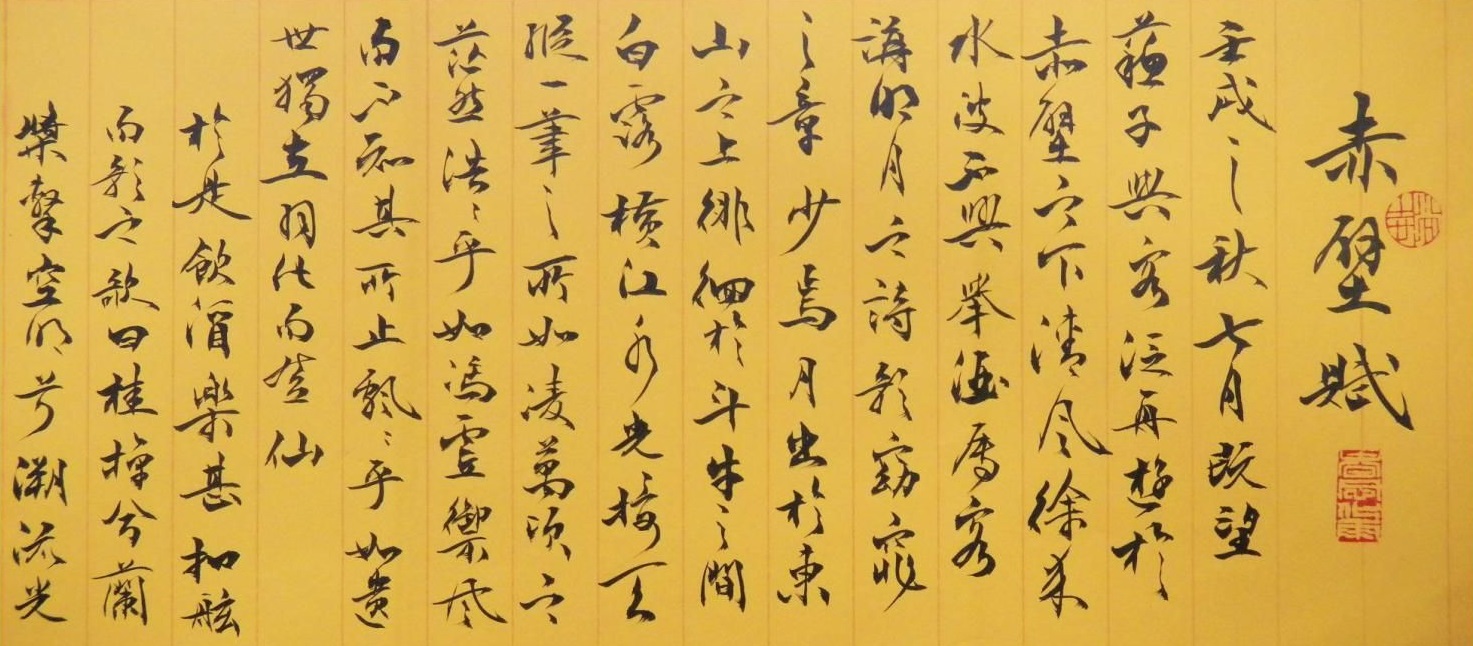 赤壁賦
壬戌之秋七月既望
蘇子與客泛舟遊於
赤壁之下清风徐来
水波不興举酒属客
誦明月之詩歌窈窕
之章少焉月出於東
山之上徘徊於斗牛之間
白露横江水光接天
縱一葦之所如凌萬顷之
茫然浩〻乎如馮虚御风
而不知其所止飄〻乎如遗
世獨立羽化而登仙
於是飲酒樂甚扣舷
而歌之歌曰桂棹兮蘭
槳擊空明兮溯流光